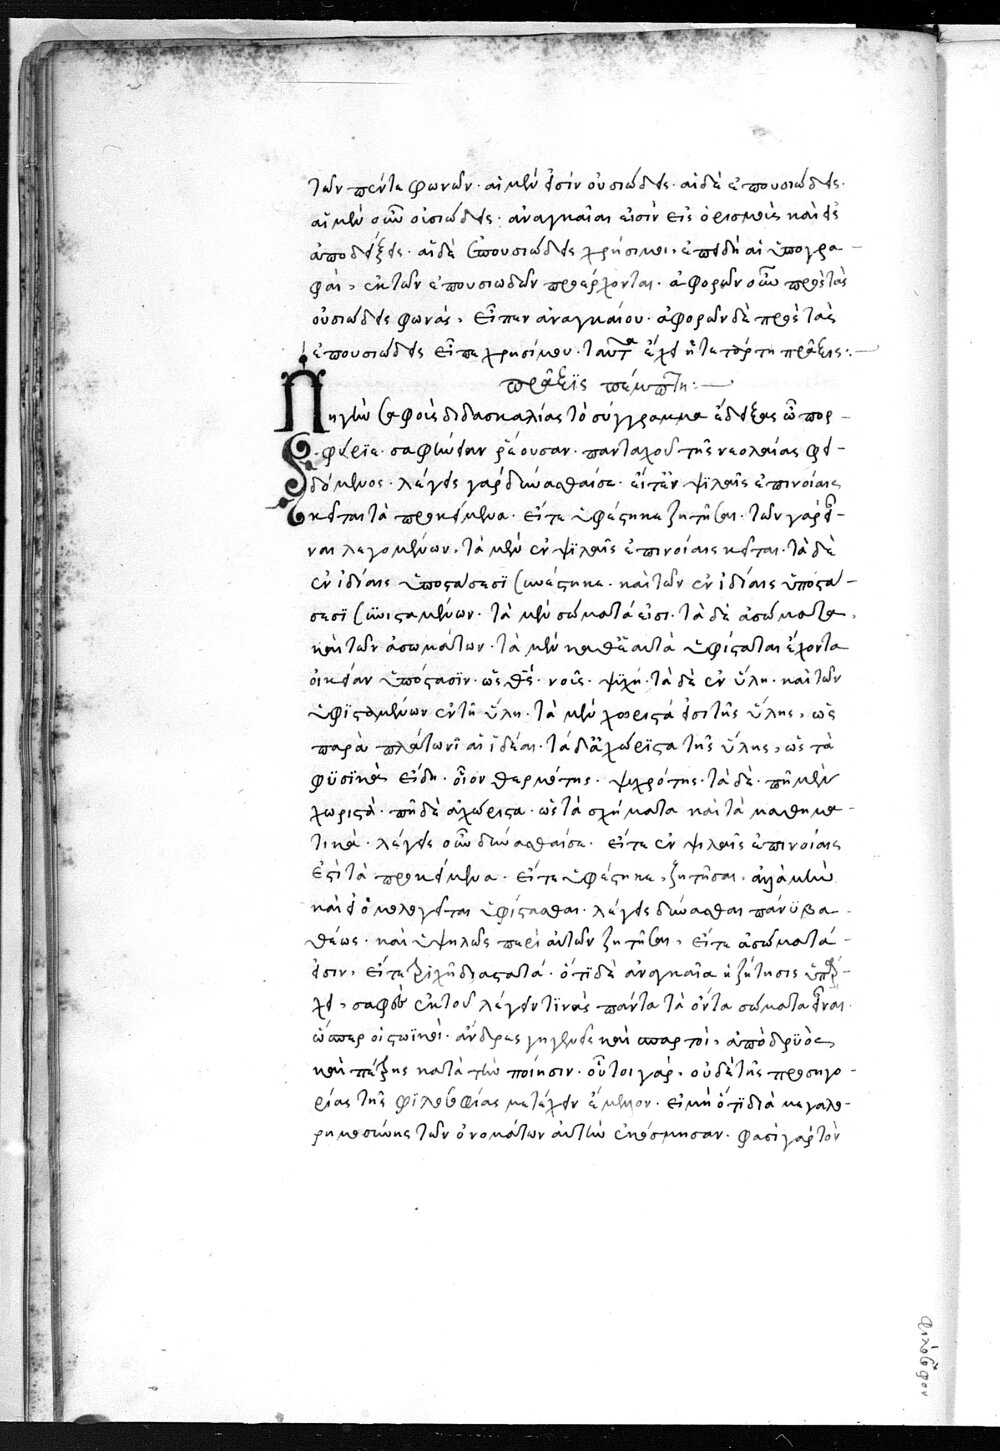 τῶν πέντε φωνῶν· αἱ μὲν εἰσὶν οὐσιώδεις· αἱ δὲ ἐπουσιώδεις·
αἱ μὲν οὖν οὐσιώδεις· ἀναγκαῖαι εἰσὶν εἰς ὁρισμοὺς καὶ εἰς
ἀποδείξεις· αἱ δὲ ἐπουσιώδεις χρήσιμοι, ἐπειδὴ αἱ ὑπογρα-
φαὶ, ἐκ τῶν ἐπουσιωδῶν προέρχονται. ἀφορῶν οὖν πρὸς τὰς
οὐσιώδεις φωνάς, εἶπεν ἀναγκαίου· ἀφορῶν δὲ πρὸς τὰς
ἐπουσιώδεις εἶπε χρησίμου. ταῦτα ἔχει ἡ τετάρτη πρᾶξις:
πρᾶξις πέμπτη:
Πηγὴν σαφοῦς διδασκαλίας τὸ σύγγραμμα ἔδειξας ὦ πορ-
φύριε· σαφήνειαν ῥέουσαν· πανταχοῦ τῆς νεολαίας φει-
δόμενος. λέγεις γὰρ δύνασθαι σε· εἴτε ἐν ψιλαῖς ἐπινοίαις
κεῖται τὰ προκείμενα· εἴτε ὑφέστηκε ζητῆσαι. τῶν γὰρ εἶ-
ναι λεγομένων, τὰ μὲν ἐν ψιλαῖς ἐπινοίαις κεῖται· τὰ δὲ
ἐν ἰδίαις ὑποστάσεσι συνέστηκε. καὶ τῶν ἐν ἰδίαις ὑποστά-
σεσι συνισταμένων· τὰ μὲν σώματά εἰσι. τὰ δὲ ἀσώματα.
καὶ τῶν ἀσωμάτων· τὰ μὲν καθ' αὑτὰ ὑφίσταται ἔχοντα
οἰκείαν ὑπόστασιν· ὡς θεός· νοῦς· ψυχή· τὰ δὲ ἐν ὕλῃ. καὶ τῶν
ὑφισταμένων ἐν τῇ ὕλῃ· τὰ μὲν χωριστά εἰσι τῆς ὕλης, ὡς
παρὰ πλάτωνι αἱ ἰδέαι. τὰ δὲ ἀχώριστα τῆς ὕλης, ὡς τὰ
φυσικὰ εἴδη· οἷον θερμότης· ψυχρότης· τὰ δὲ πῆ μὲν
χωριστὰ· πῆ δὲ ἀχώριστα· ὡς τὰ σχήματα καὶ τὰ μαθημα-
τικά. λέγεις οὖν δύνασθαι σε· εἴτε ἐν ψιλαῖς ἐπινοίαις
ἐστὶ τὰ προκείμενα· εἴτε ὑφέστηκε, ζητῆσαι. ἀλλὰ μὴν
λέγεις δύνασθαι πάνυ βα-
θέως· καὶ ὑψηλῶς περὶ αὐτῶν ζητῆσαι, εἴτε ἀσώματά
εἰσιν, εἴτε τριχῆ διαστατά. ὅτι δὲ ἀναγκαῖα ἡ ζήτησις ὑπάρ-
χει, σαφὲς ἐκ τοῦ λέγειν τινὰς πάντα τὰ ὄντα σώματα εἶναι.
ὥσπερ οἱ στωϊκοὶ· ἄνδρες γηγενεῖς καὶ σπαρτοὶ, ἀπὸ δρυὸς
καὶ πέτρης κατὰ τὴν ποίησιν. οὗτοι γὰρ, οὐδὲ τῆς προσηγο-
ρίας τῆς φιλοσοφίας μετέχειν ἔμελλον· εἰ μὴ ὅτι διὰ μεγαλο-
ρημοσύνης τῶν ὀνομάτων αὐτὴν ἐκόσμησαν. φασὶ γὰρ τὸν
φιλόσοφον